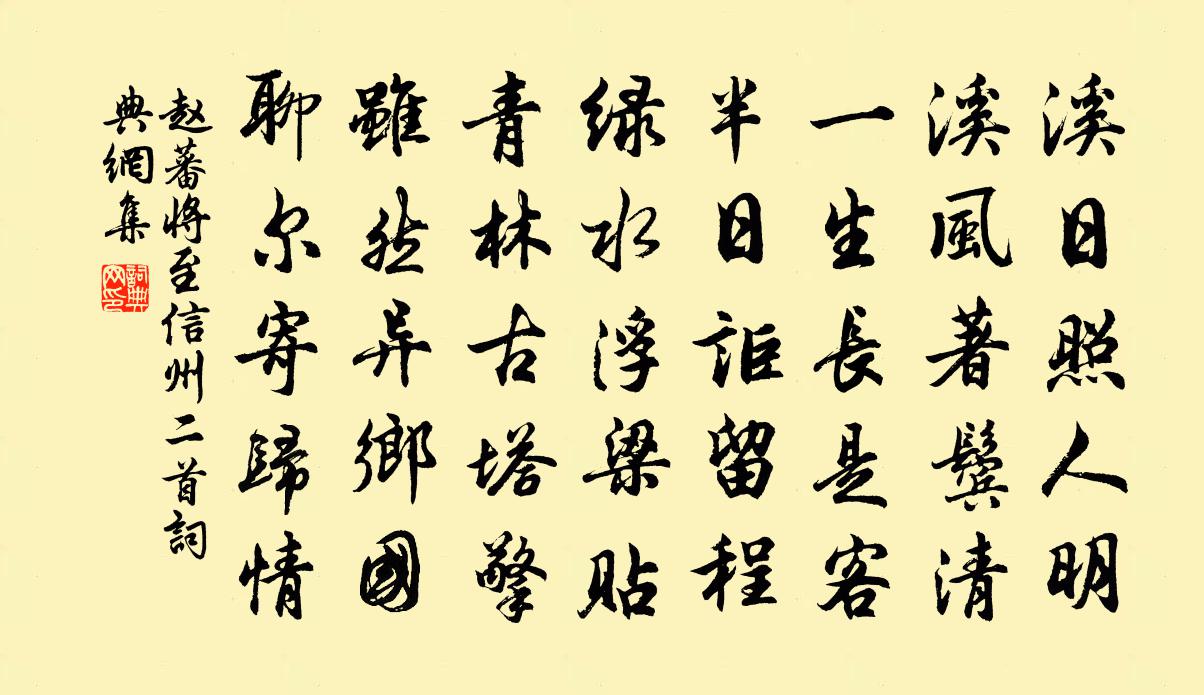 溪日照人明
溪風著鬢清
一生長是客
半日詎留程
緑水浮梁貼
青林古塔擎
雖然异鄉國
聊尔寄歸情
赵蕃將至信州二首詞
典網集
詞典
网印